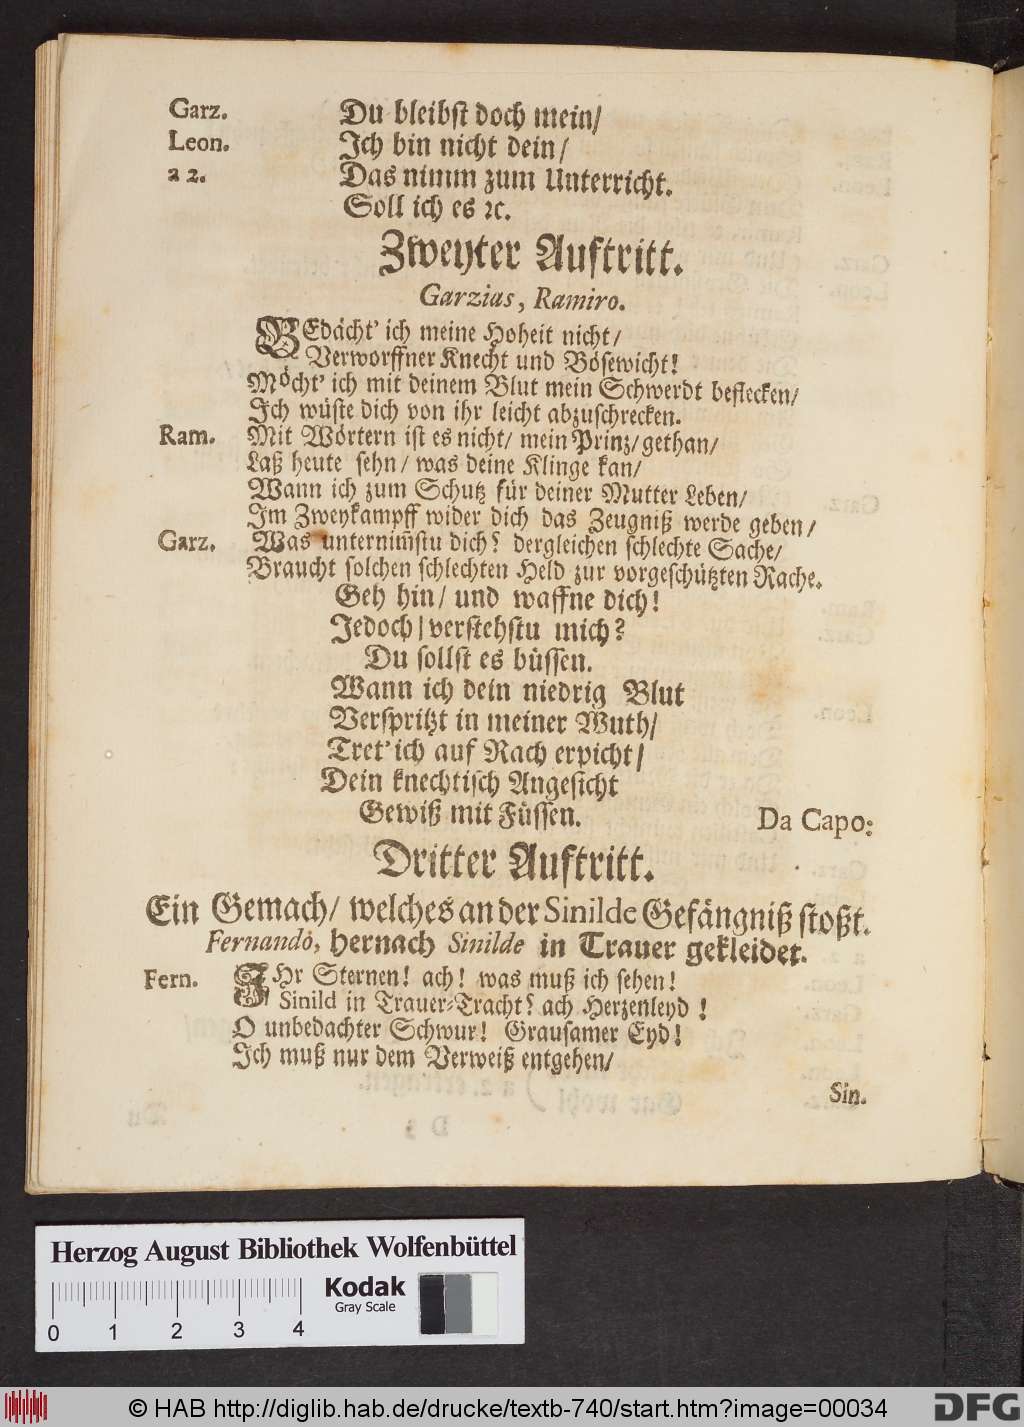 Garz. Du bleibst doch mein/
Leon. Ich bin nicht dein/
a 2. Das nimm zum Unterricht.
Soll ich es ꝛc.
Zweyter Auftritt.
Garzias, Ramiro.
BEdächt' ich meine Hoheit nicht/
Verworffner Knecht und Bösewicht!
Möcht' ich mit deinem Blut mein Schwerdt beflecken/
Ich wüste dich von ihr leicht abzuschrecken.
Ram. Mit Wörtern ist es nicht/ mein Prinz/ gethan/
Laß heute sehn/ was deine Klinge kan/
Wann ich zum Schutz für deiner Mutter Leben/
Im Zweykampff wider dich das Zeugniß werde geben/
Garz. Was unternim̅stu dich? dergleichen schlechte Sache/
Braucht solchen schlechten Held zur vorgeschützten Rache.
Geh hin/ und waffne dich!
Jedoch/ verstehstu mich?
Du sollst es büssen.
Wann ich dein niedrig Blut
Verspritzt in meiner Wuth/
Tret' ich auf Rach erpicht/
Dein knechtisch Angesicht
Gewiß mit Füssen. Da Capo:
Dritter Auftritt.
Ein Gemach/ welches an der Sinilde Gefängniß stoßt.
Fernando, hernach Sinilde in Trauer gekleidet.
Fern. IHr Sternen! ach! was muß ich sehen!
Sinild in Trauer-Tracht? ach Herzenleyd!
O unbedachter Schwur! Grausamer Eyd!
Ich muß nur dem Verweiß entgehen/
Sin.
Herzog August Bibliothek Wolfenbüttel
Kodak
Gray Scale
0 1 2 3 4
© HAB http://diglib.hab.de/drucke/textb-740/start.htm?image=00034
DFG